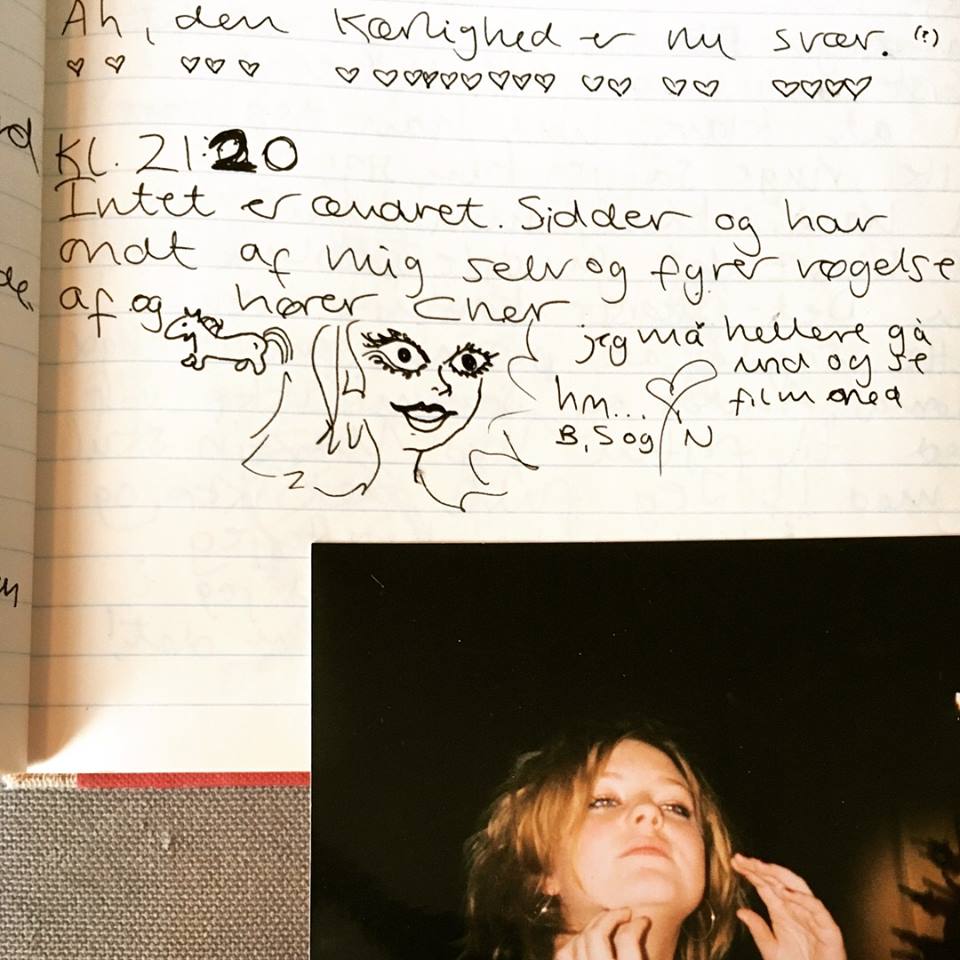 Ah, den kærlighed er nu svær. (?)
Kl. 21:20
Intet er ændret. Sidder og har
ondt af mig selv og fyrer røgelse
af og hører Cher
jeg må hellere gå
ind og se
film med
hm...
B, S og N